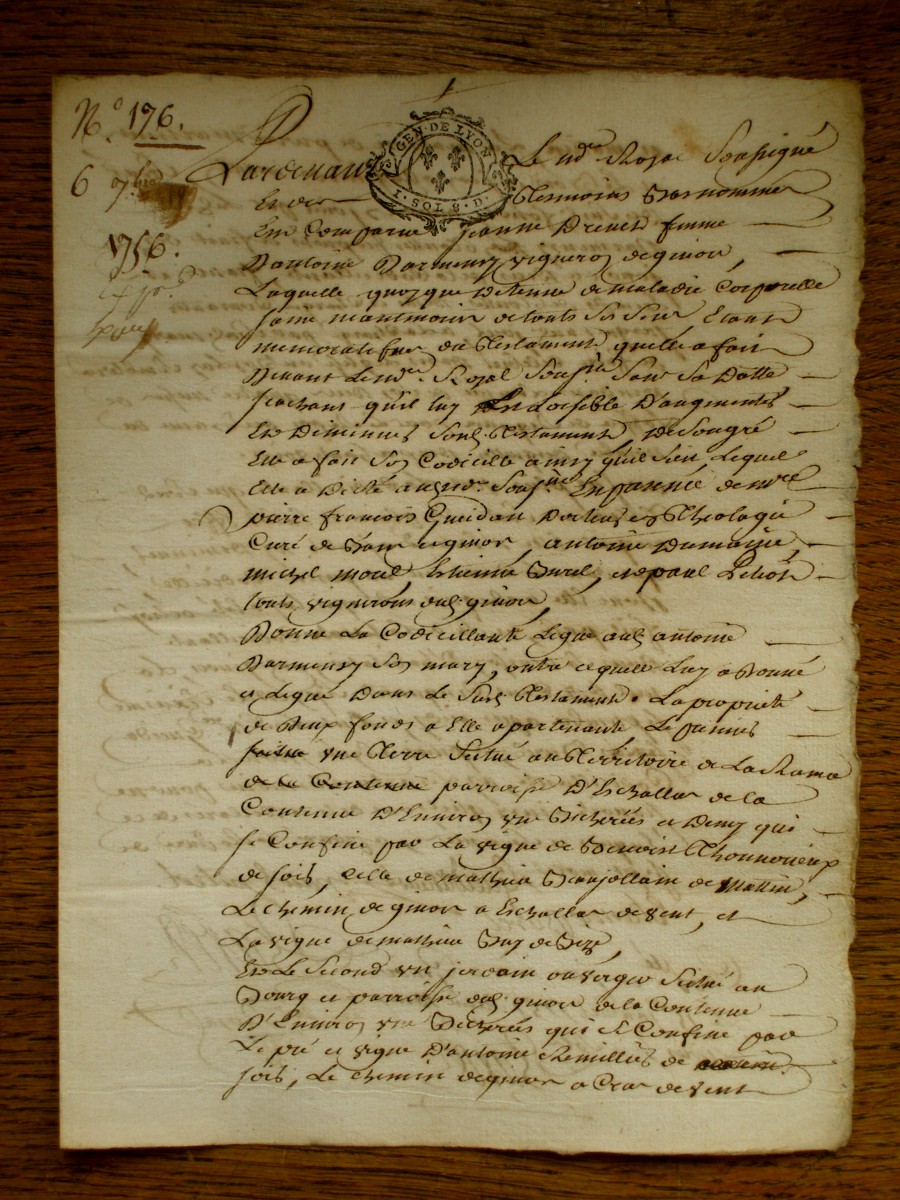 N.o 176.
6 7bre
1756.
GEN. DE LYON
1. SOL 8. D.
Pardevant Le nore Royal Soussigné
Et des Tesmoins Bas nommés
Est Comparue jeanne femme
D'antoine Darmensy vigneron de givor,
Laquelle quoyque Détenue de maladie Corporelle
saine neantmoins de touts ses sens Etant
memorative du Testament qu'elle a fait
Devant Le nore Royal Soussné Sous Sa Datte
scachant qu'il luy Est Loisible D'augmenter
Et Diminuer Sond. Testament, De Son gré
Elle a fait Son Codicille ainsy qu'il suit Lequel
Elle a Dicté aud. nore Soussné En présence de mre
pierre françois Gueidan Docteur en Theologie
Curé de givor, antoine Dumaine,
michel morel, Estienne Burel, et paul
touts vignerons aud. givor,
Donne La Codicillante Legue aud. antoine
Darmensy Son mary, outre ce quelle Luy a Donné
et Legué Dans Le Susd. Testament. La proprieté
de Deux fonds a Elle apartenants, Le premier
une Terre Situé au Territoire de La Rama
de la Contenue parroisse D'Echallas de la
Contenue D'Environ une Bicherée et Demy qui
se Confine par La vigne de Benoist Thonnerieux
de soir, celle de mathieu Beaujollain de Matin,
Le chemin de givor a Echallas de vent, et
La vigne de mathieu de Bize,
Et Le Second un jardin ou verger Situé au
Bourg et parroisse dud. givor de la Contenue
D'Environ une Bicherée qui Se Confine par
Le pré et vigne D'antoine de
soir, Le chemin de givor a de vent